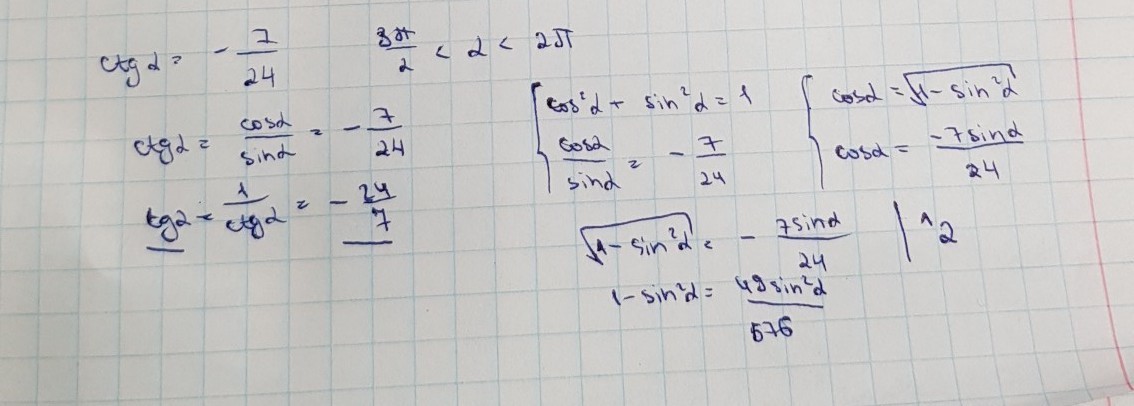 ctg α = - 7/24    3π/2 < α < 2π
ctg α = cosα/sinα = - 7/24
tgα = 1/ctgα = - 24/7
{ cos²α + sin²α = 1
cosα/sinα = - 7/24
{ cosα = √(1 - sin²α)
cosα = -7sinα/24
√(1 - sin²α) = - 7sinα/24 | ^2
1 - sin²α = 49sin²α/576